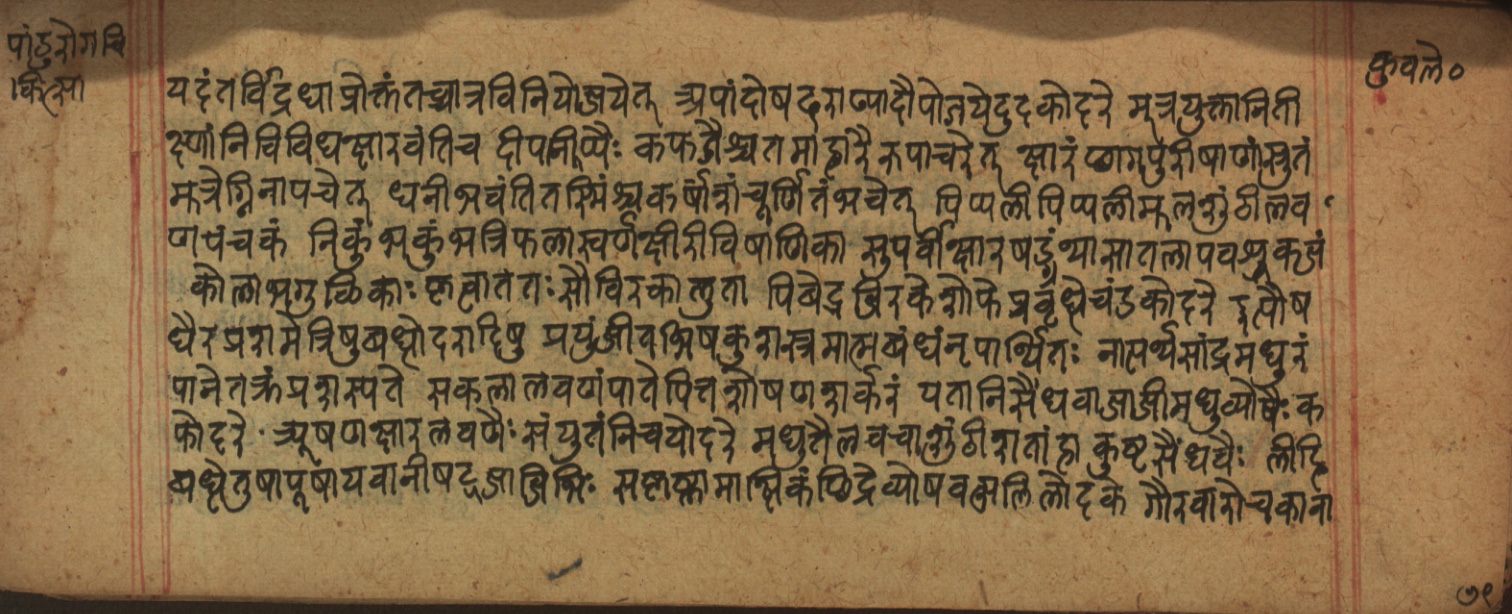 पांडुरोगचि
कित्सा
कुवले०
यदंतर्विद्रधा प्रोक्तं तच्चात्र विनियोजयेत् अपां दोषहराण्यादौ योजयेदुदकोदरे मूत्रयुक्तानि ती
क्ष्णानि विविधक्षारवंति च दीपनीयैः कफघ्नैश्च तमाहारैरुपाचरेत् क्षारं छागपुरीषाणां स्रुतं
मूत्रेग्निना पचेत् घनीभवंति तस्मिंश्च कर्षांशं चूर्णितं भवेत् पिप्पली पिप्पलीमूल शुंठी लव
णपंचकं निकुंभकुंभत्रिफलास्वर्णक्षीरीविषाणिका सुपर्वीक्षारषड्ग्रंथासातलायवशूकजं
कोलाभगुळिकाः कृत्वा ततः सौविरकालुता पिबेद् शोफे प्रवृद्धे चंडकोदरे इत्यौष
धैरप्रशमे त्रिषु बध्नोदरादिषु प्रयुंजीत भिषक् शस्त्रमात्मबंधंनृपार्थितः नात्यर्थसांद्रमधुरं
पाने तक्रं प्रशस्यते सकलालवणं पाते पित्त शोषण शार्करं यतानि सैंधवाजाजीमधुव्योषैः क
फोदरे त्र्यूषणक्षारलवणैः संयुतं निचयोदरे मधुतैलवचाशुंठीशतांहाकुष्टसैंधवैः लीहि
बध्नेतु यवानीषद्जाजिभिः सकृष्णामाक्षिकं छिद्रे व्योषवत्सलिलोदके गौरवारोचकाना
७९